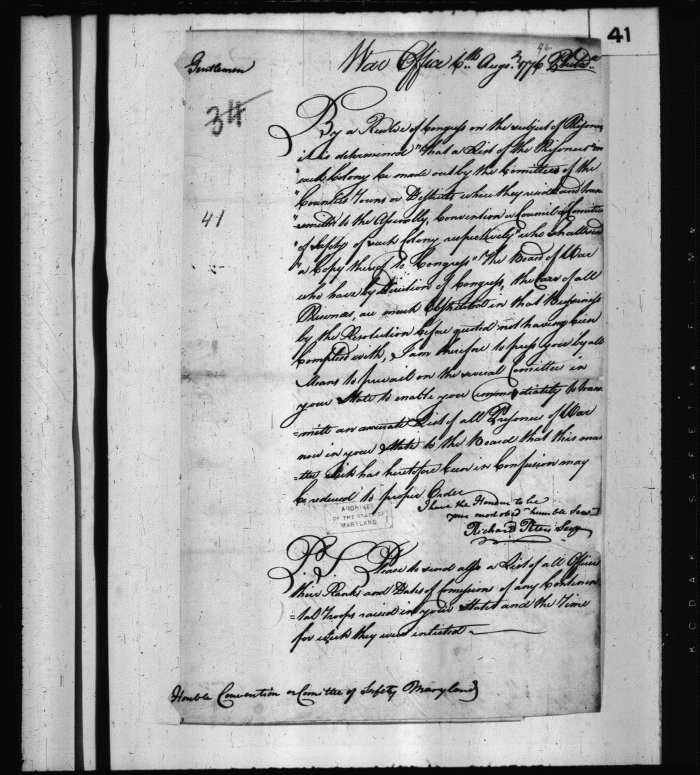 41
46
War Office 6th Augt. 1776 Philada
Gentlemen
34
By a Resolve of Congress on the subject of Prisoners
it is determined "that a List of the Prisoners in
"each Colony be made out by the Committees of the
"Counties Towns or Districts where they reside and trans
"mitted to the Assembly, Convention or Council or Committee
41
"of Safety of such Colony respectively who shall send
"a Copy thereof to Congress" The Board of War
who have by direction of Congress, the care of all
Prisoners, are much obstructed in that Business
by the Resolution before quoted not having been
complied with, I am therefore to press you by all
Means to prevail on the several Comittees in
your State to enable you immediately to trans
=mitt an accurate List of all Prisoners of War
now in your State to the Board that this ma
=tter which has heretofore been in Confusion may
be reduced to proper Order
I have the Honour to be
your most obed humble Servt
Richard Peters Secy
ARCHIVES
OF THE STATE OF
MARYLAND
P.S. Please to send also a List of all Officers
their Ranks and Dates of Comissions of any Continen
=tal Troops raised in your State and the Time
for which they were inlisted
Honble Convention or Comittee of Safety Maryland
KODAK SAFE